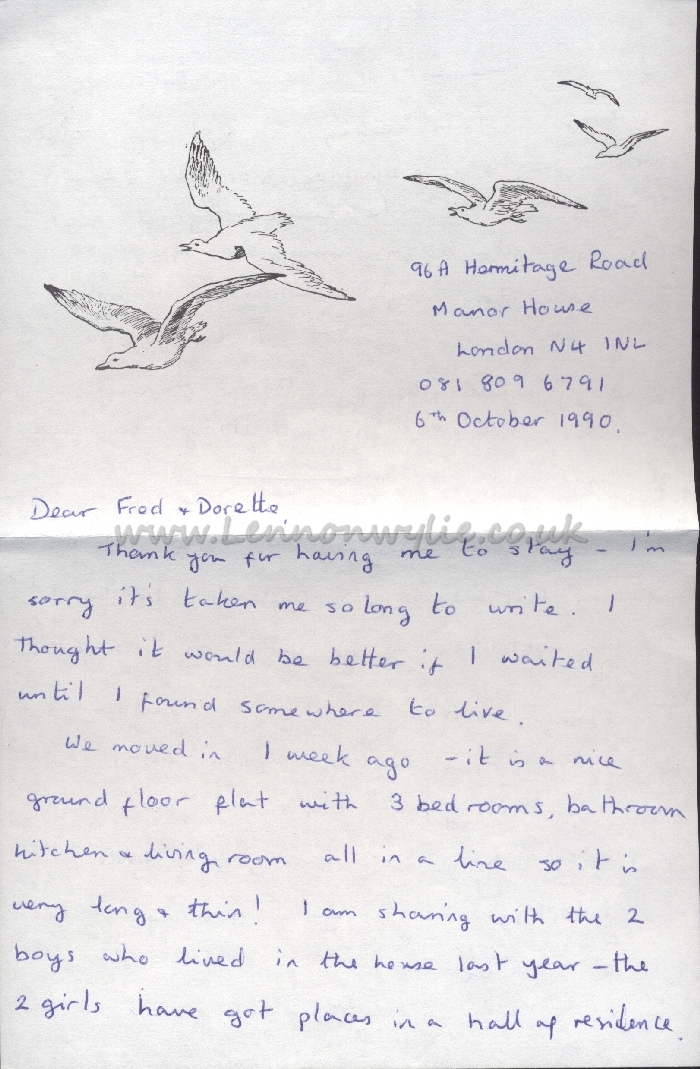 96A Hermitage Road
Manor House
London N4 1NL
081 809 6791
6th October 1990.
Dear Fred + Dorette,
www.Lennonwylie.co.uk
Thank you for having me to stay – I'm
sorry it's taken me so long to write. I
thought it would be better if I waited
until I found somewhere to live.
We moved in 1 week ago – it is a nice
ground floor flat with 3 bedrooms, bathroom
kitchen + living room all in a line so it is
very long + thin! I am sharing with the 2
boys who lived in the house last year – the
2 girls have got places in a hall of residence.